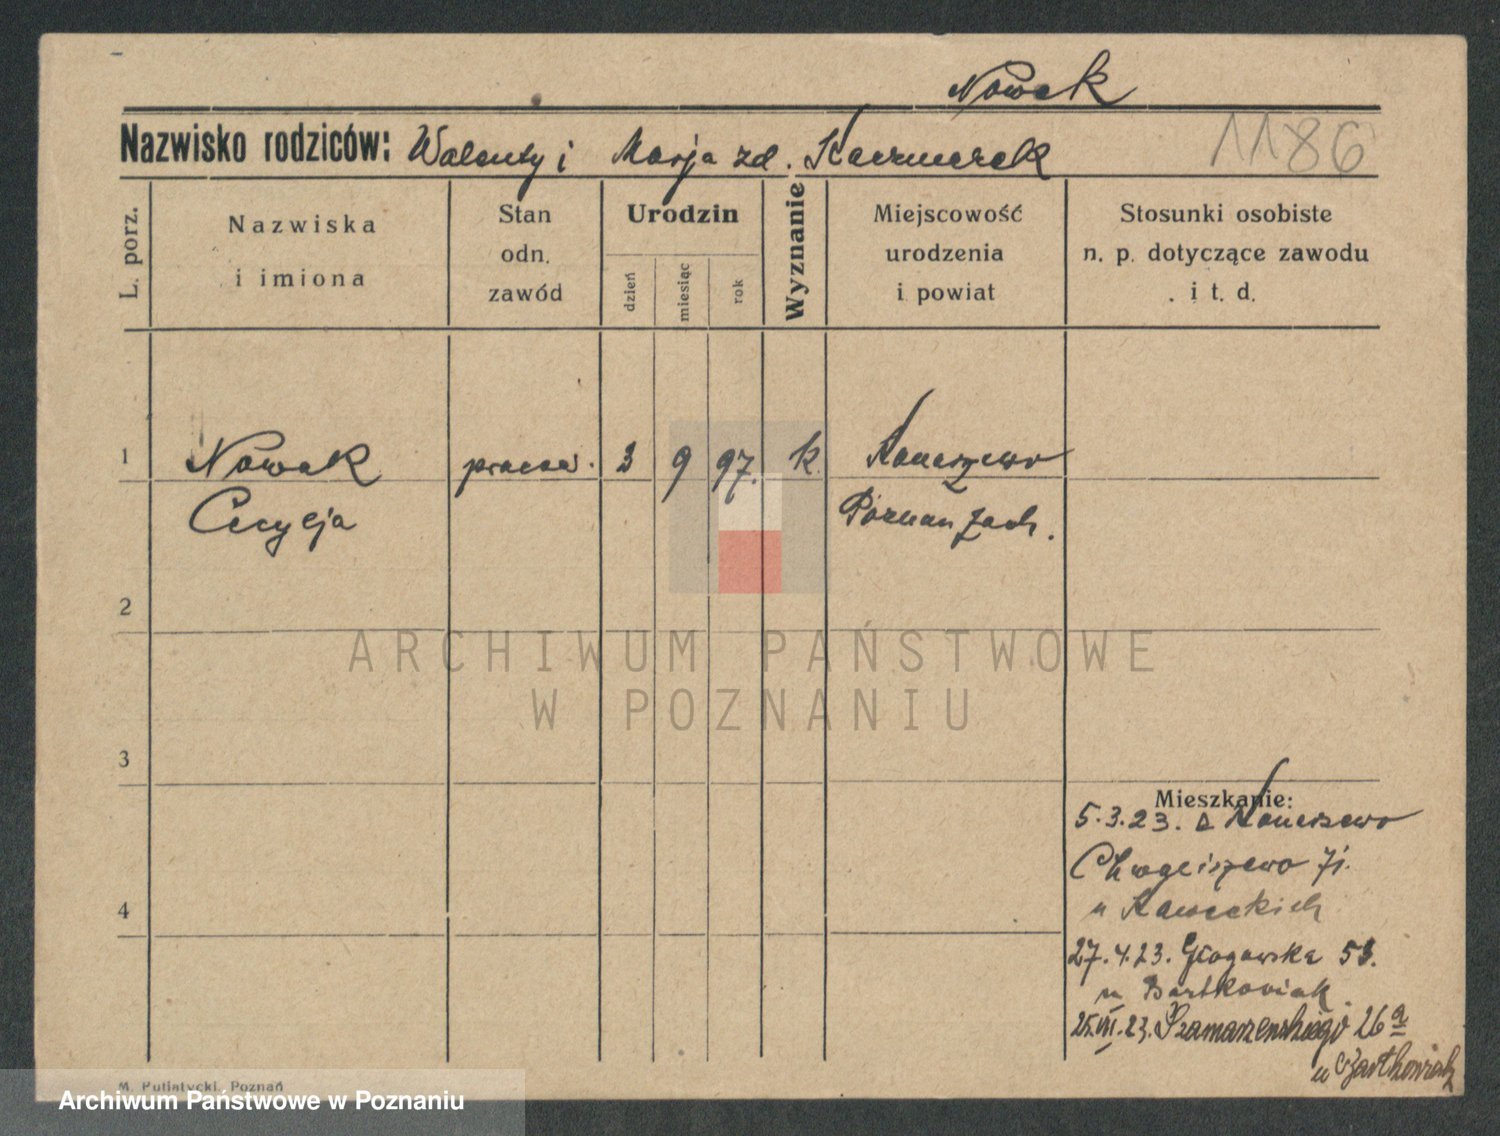 Nowak
Nazwisko rodziców: Walenty i Marja zd. Kaczmarek 1186
L. porz.
Nazwiska
i imiona
Stan
odn.
zawód
Urodzin
dzień
miesiąc
rok
Wyznanie
Miejscowość
urodzenia
i powiat
Stosunki osobiste
n. p. dotyczące zawodu
i t. d.
1 Nowak 3 9 97. k.
Cecylja Poznań Zach.
2
3
4
Mieszkanie:
5.3.23.
Chwaliszewo
u
27.4.23. Głogowska 53.
u Bartkowiak
25.VII.23. Szamarzewskiego 26a
u
M. Putiatycki, Poznań
ARCHIWUM PAŃSTWOWE
W POZNANIU
Archiwum Państwowe w Poznaniu